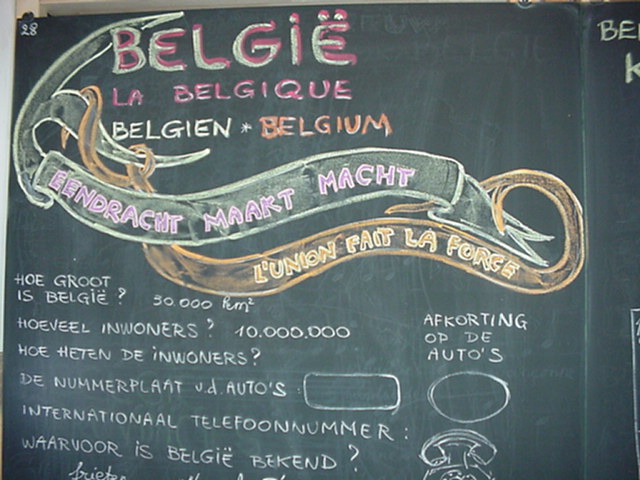 28
BELGIË
LA BELGIQUE
BELGIEN * BELGIUM
EENDRACHT MAAKT MACHT
L'UNION FAIT LA FORCE
HOE GROOT
IS BELGIË? 30.000 km²
HOEVEEL INWONERS? 10.000.000
HOE HETEN DE INWONERS?
DE NUMMERPLAAT v.d. AUTO'S:
AFKORTING
OP DE
AUTO'S
INTERNATIONAAL TELEFOONNUMMER:
WAARVOOR IS BELGIË BEKEND?
frieten
BE
K